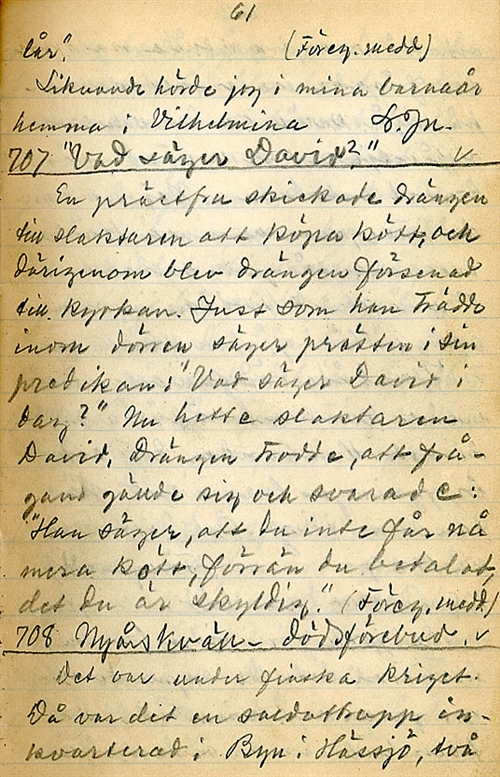 61
lår." (Föreg. medd)
Liknande hörde jag i mina barnaår
hemma i Vilhelmina
707 "Vad säger David?" v
En prästfru skickade drängen
till slaktaren att köpa kött, och
därigenom blev drängen försenad
till kyrkan. Just som han trädde
inom dörren säger prästen i sin
predikan: "Vad säger David i
dag?" Nu hette slaktaren
David. Drängen trodde, att frå-
gand gällde sig och svarade:
"Han säger, att du inte får nå
mera kött, förrän du betalat,
det du är skyldig." (Föreg. medd)
708 Nyårskväll - dödsförebud. v
Det var under finska kriget.
Då var det en soldattrupp in-
kvarterad i Byn i Hässjö, två